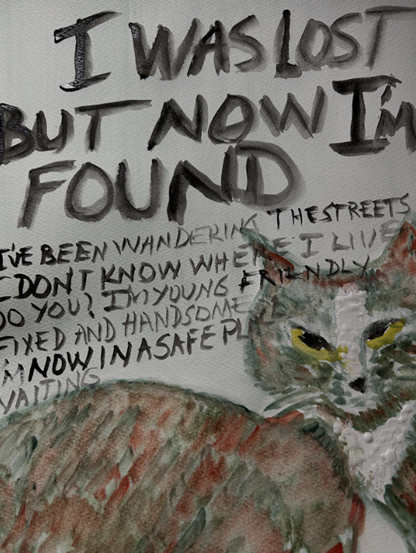 I WAS LOST
BUT NOW I'M
FOUND
I'VE BEEN WANDERING THE STREETS
I DON'T KNOW WHERE I LIVE
DO YOU? I'M YOUNG FRIENDLY
FIXED AND HANDSOME
I'M NOW IN A SAFE PLACE
WAITING